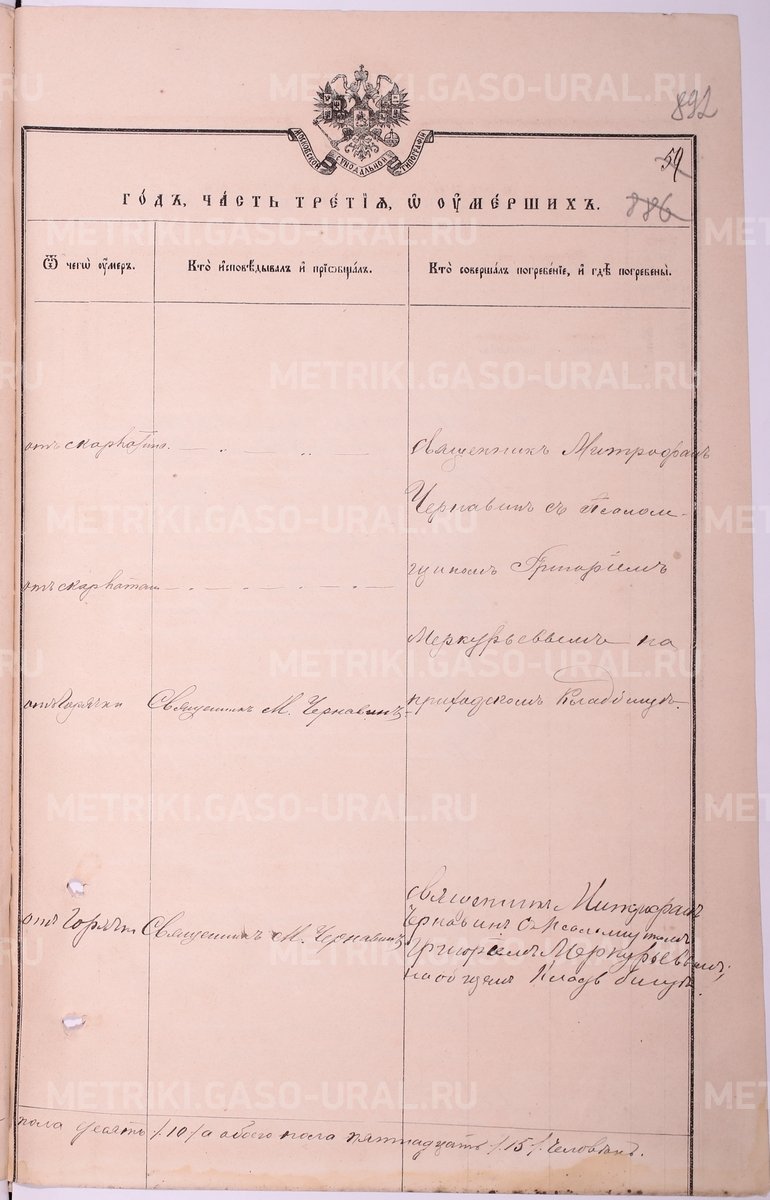 METRIKI.GASO-URAL.RU
892
МОСКОВСКОЙ СѴНОДАЛЬНОЙ ТИПОГРАФІИ
59
886
ГО́ДЪ, ЧА́СТЬ ТРЕ́ТІѦ, Ѡ҆ ОУ҆МЕ́РШИХЪ.
Ѿ чегѡ̀ оу҆́меръ.
Кто̀ и҆сповѣ́дывалъ и҆ прїѡбща́лъ.
Кто̀ соверша́лъ погребе́нїе, и҆ гдѣ̀ погребены̀.
отъ скарлатины
Священникъ Митрофанъ
Чернавинъ съ Псалом-
отъ скарлатины
щикомъ Григоріемъ
Меркурьевымъ на
отъ Горячки
Священникъ М. Чернавинъ
приходскомъ Кладбищѣ.
отъ Горячки
Священникъ М. Чернавинъ
Священникъ Митрофанъ
Чернавинъ съ Псаломщикомъ
Григоріемъ Меркурьевымъ,
на общемъ Кладбищѣ.
пола десять /10/ а обоего пола пятнадцать /15/ человѣкъ.